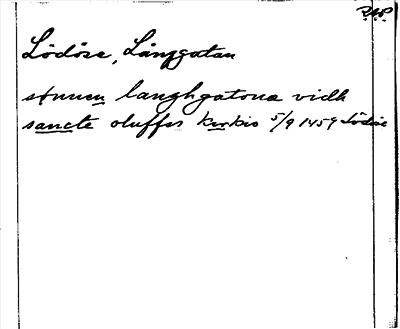 Lödöse, Långgatan
sunnen langhgatone vidh
sancte oluffs kirkio 5/9 1459 Lödöse